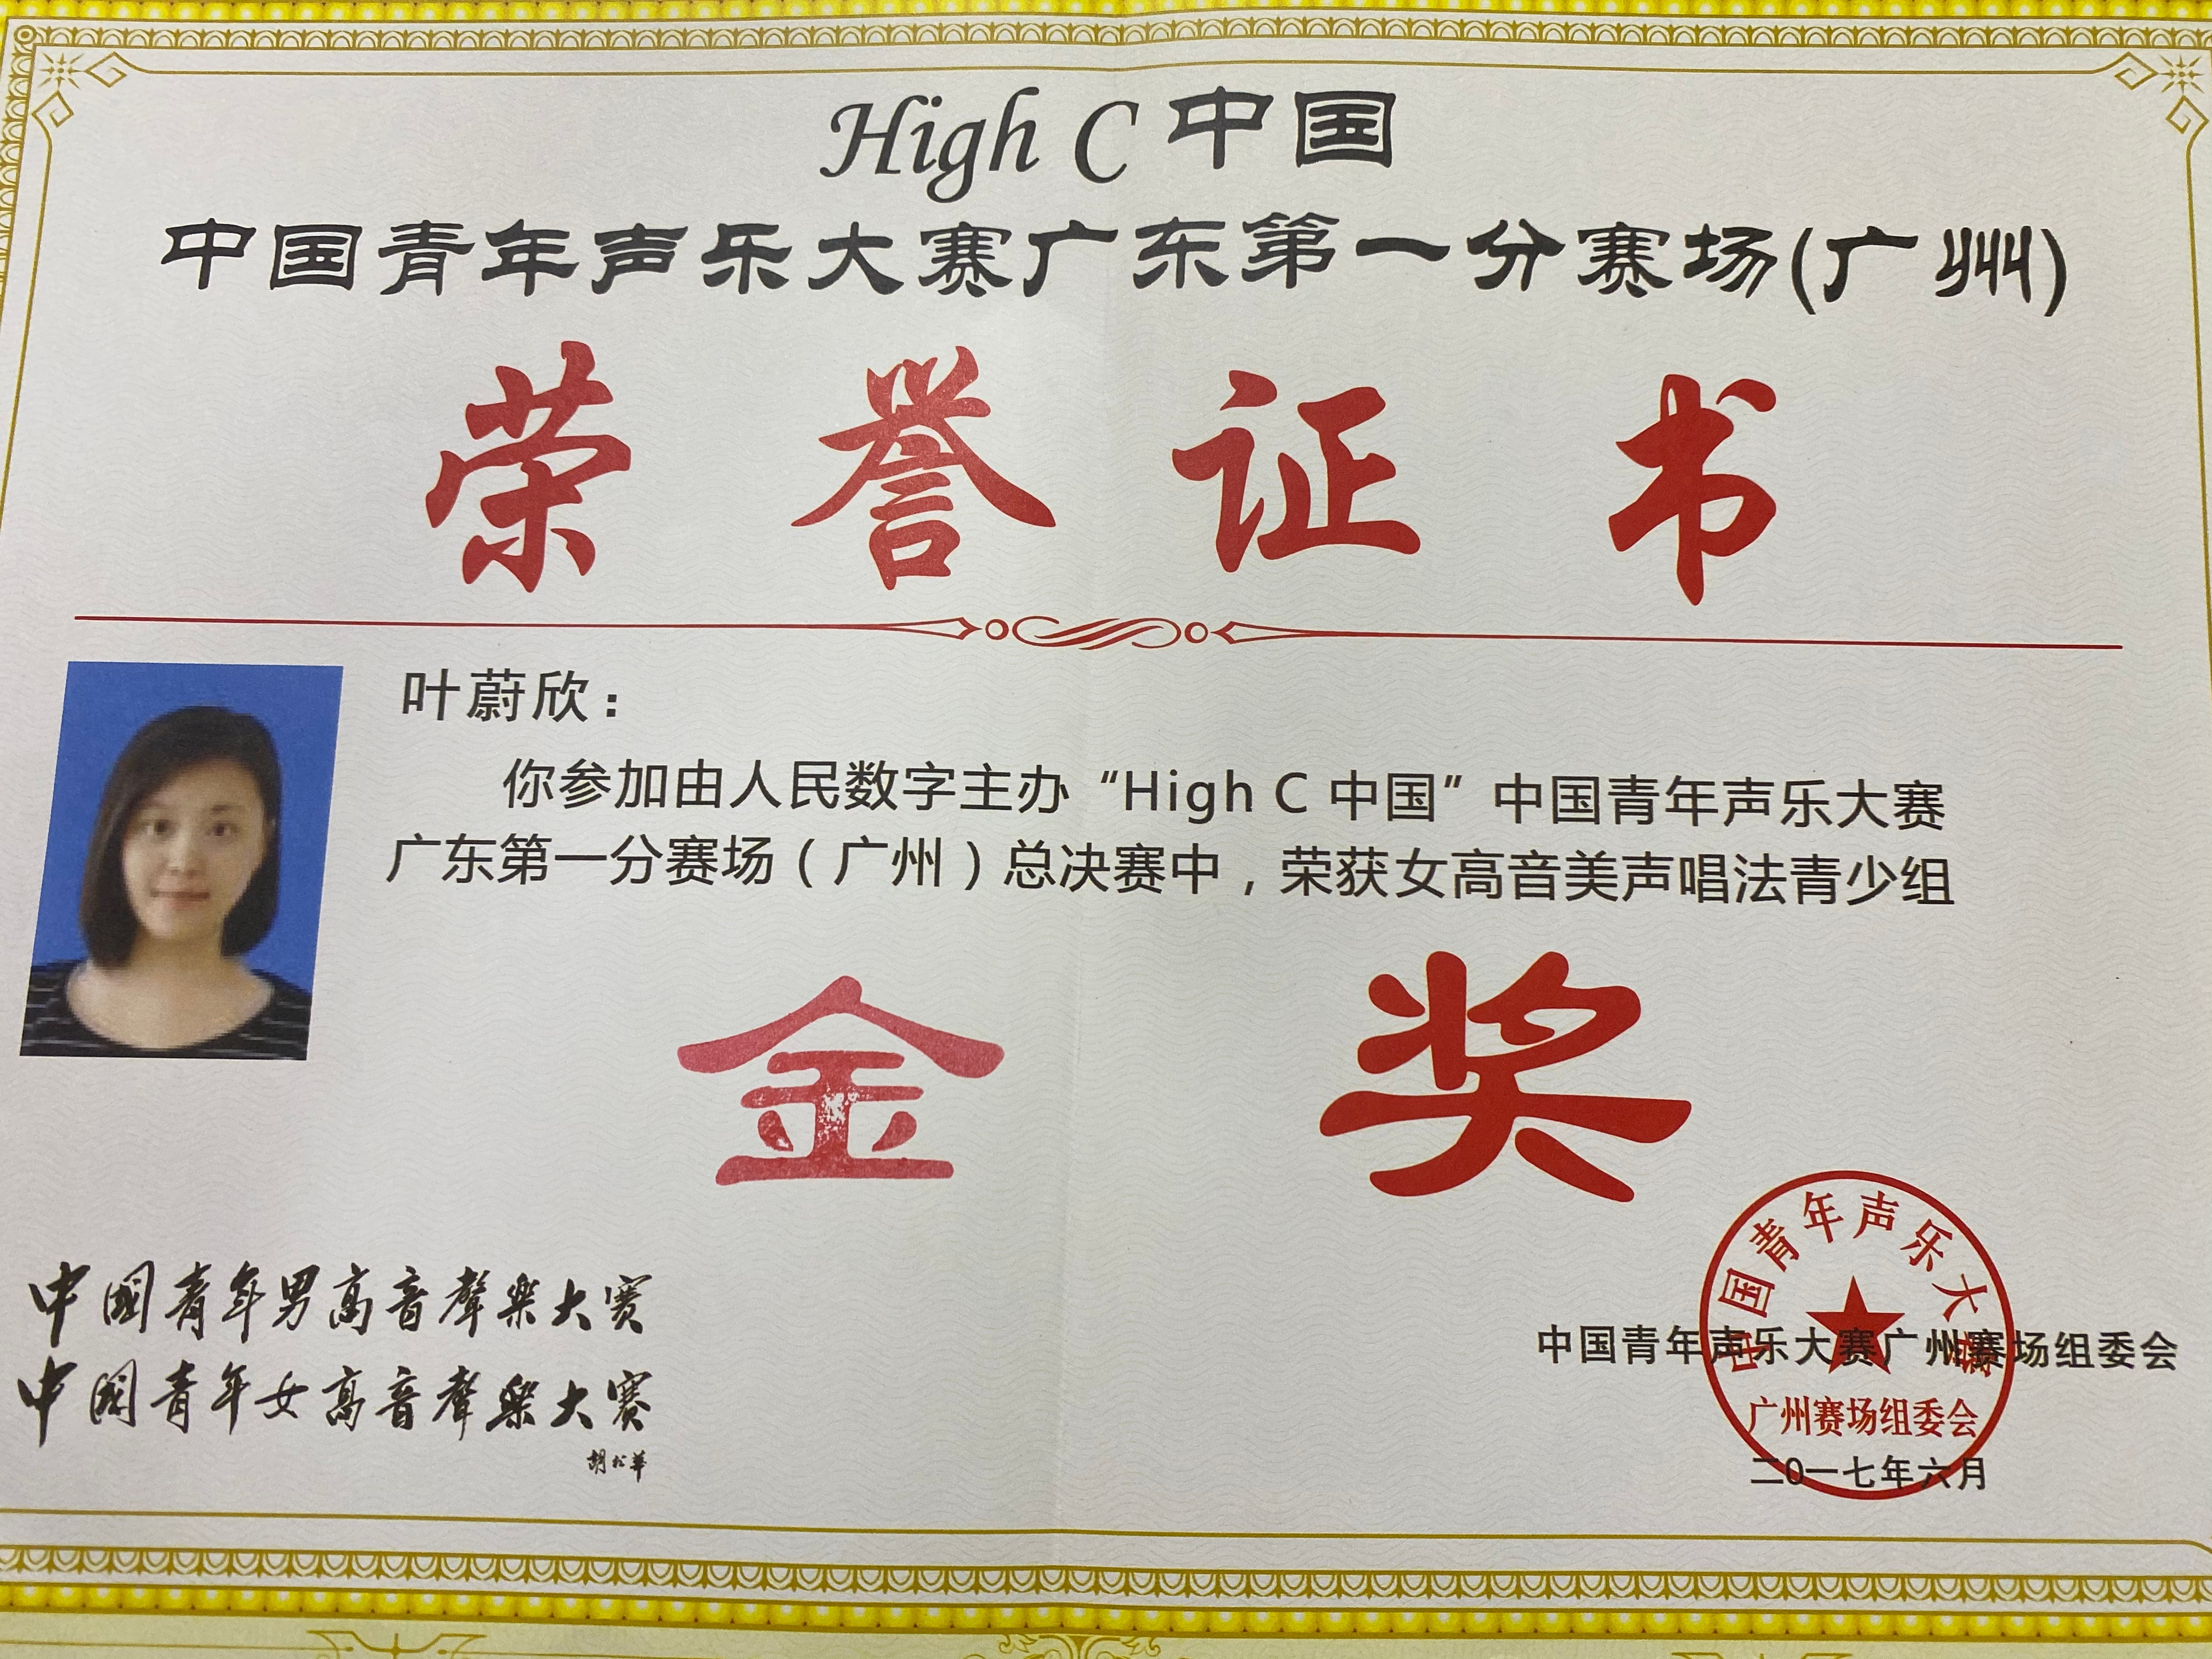 High C 中国
中国青年声乐大赛广东第一分赛场(广州)
荣誉证书
叶蔚欣：
你参加由人民数字主办“High C 中国”中国青年声乐大赛
广东第一分赛场（广州）总决赛中，荣获女高音美声唱法青少组
金奖
中國青年男高音聲樂大赛
中國青年女高音聲樂大赛
胡松華
中国青年声乐大赛
中国青年声乐大赛广州赛场组委会
广州赛场组委会
二0一七年六月